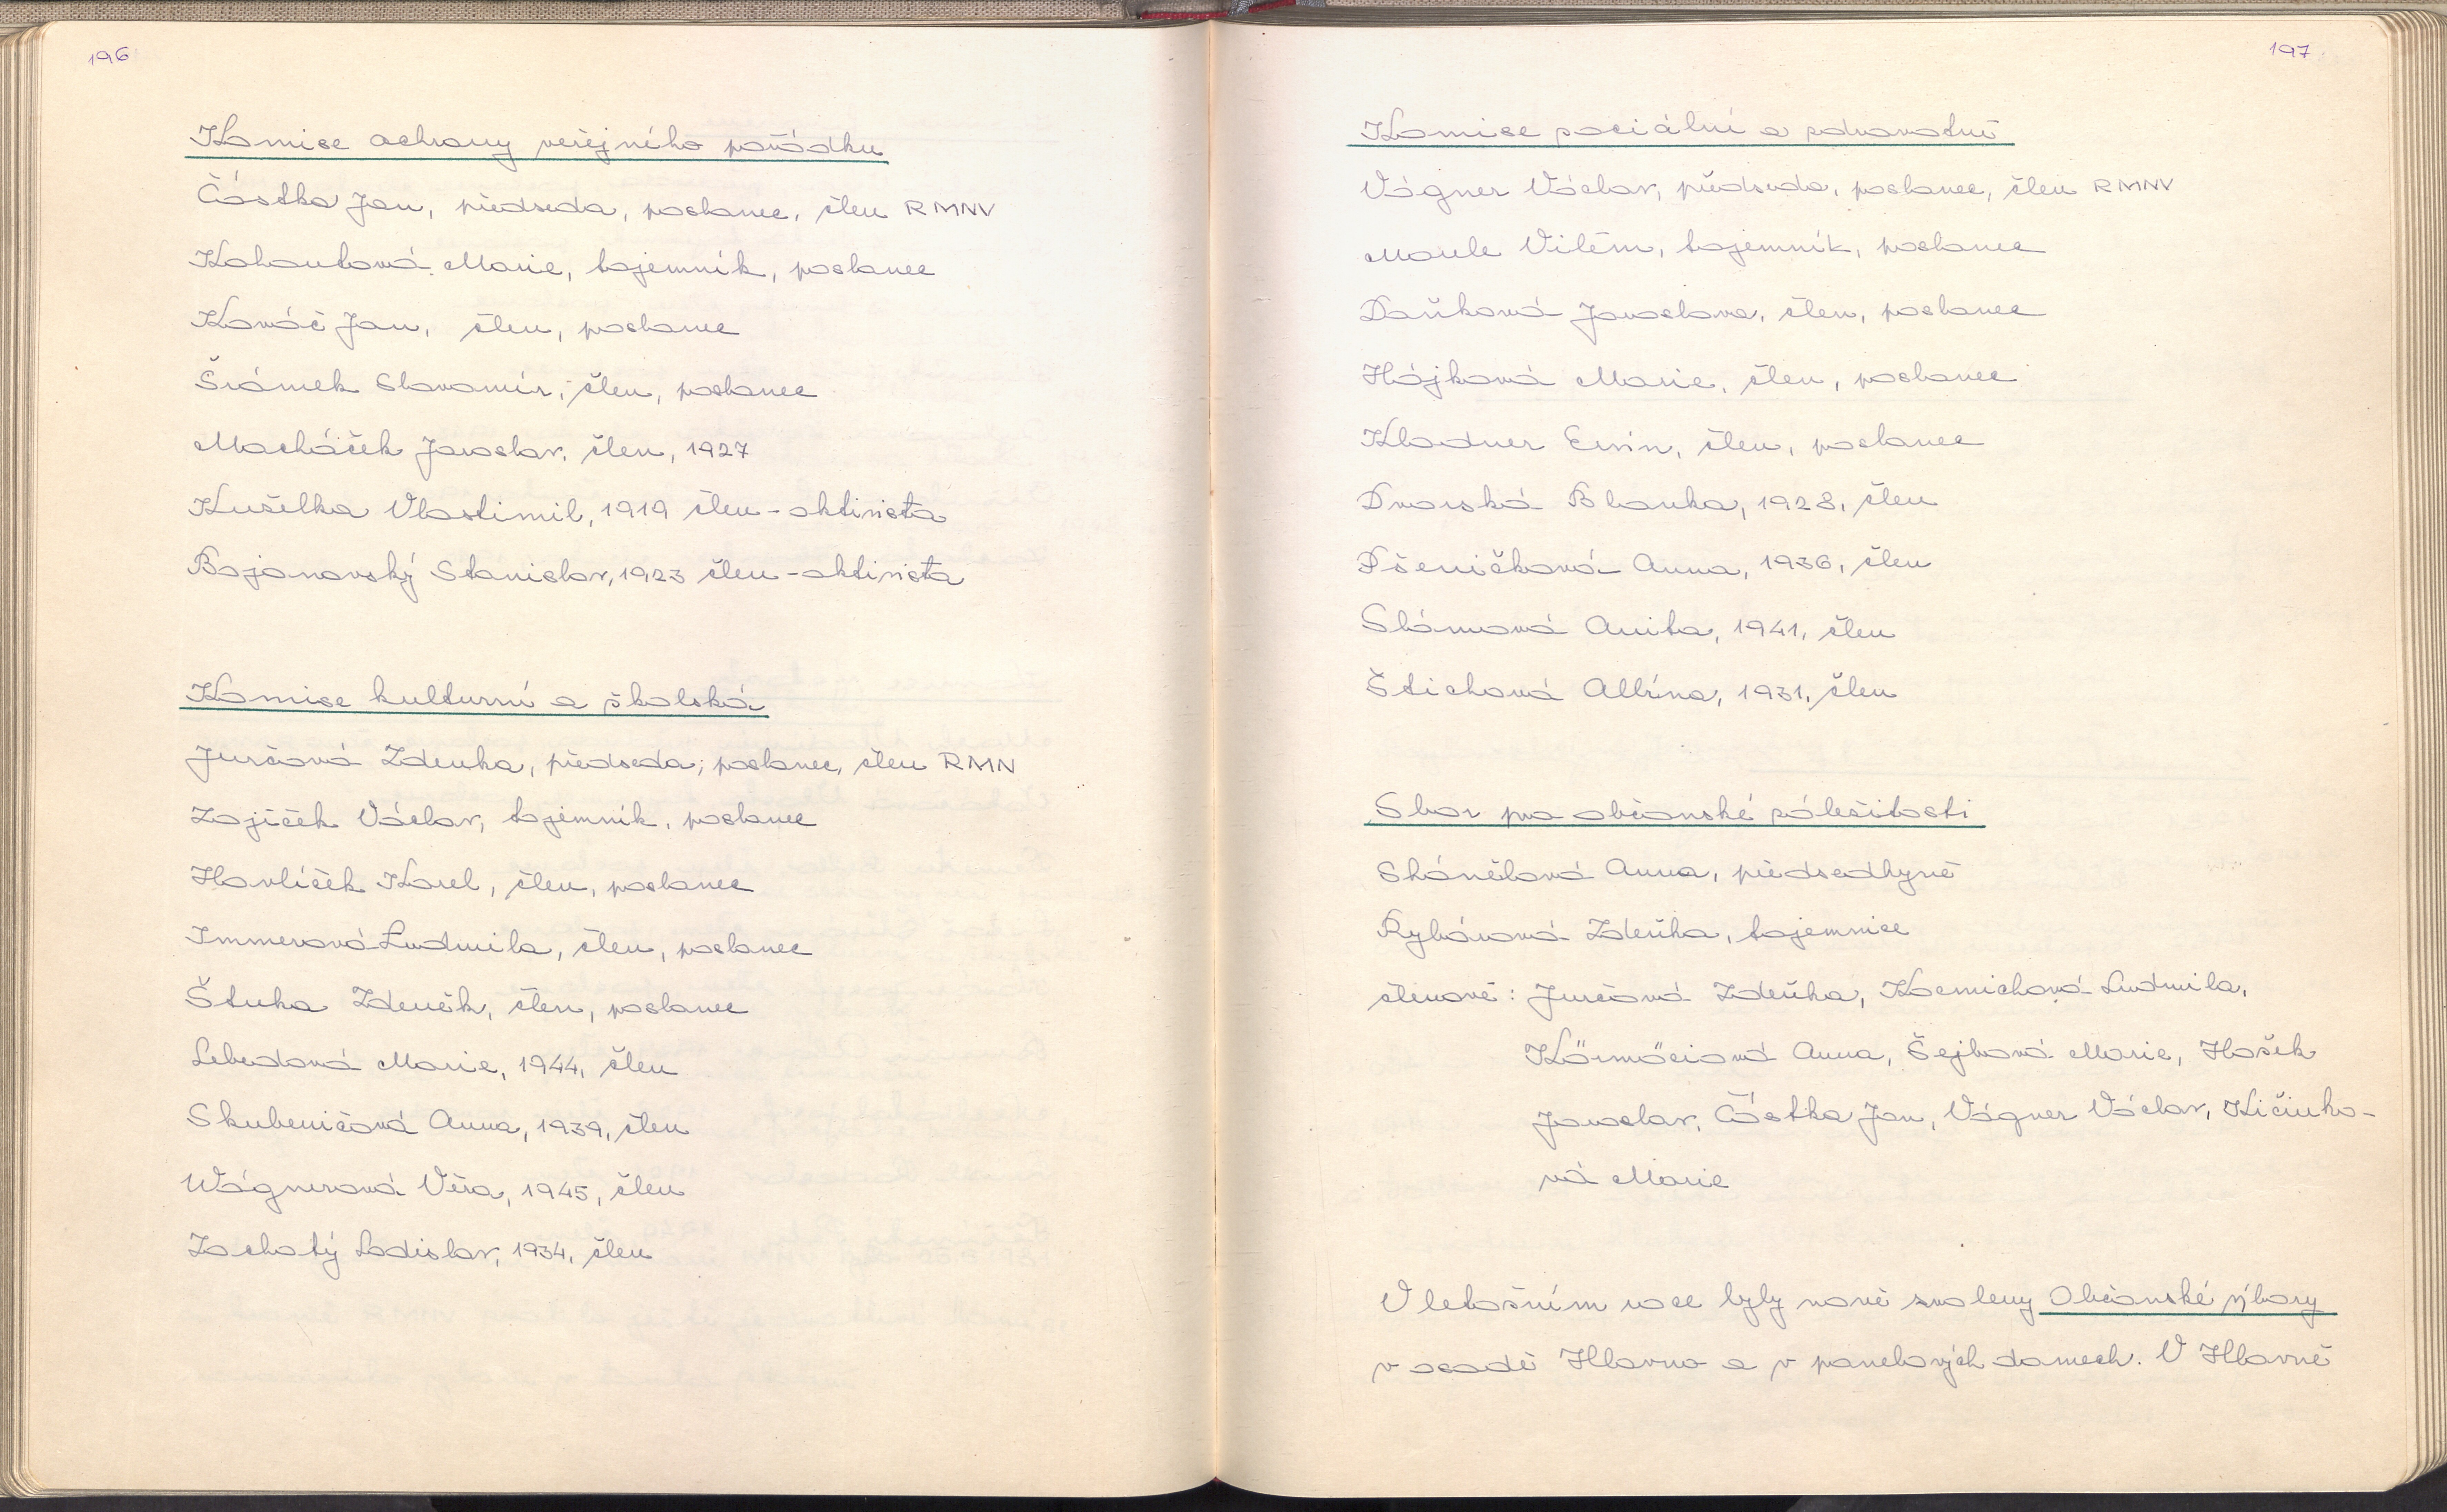 196
Komise ochrany veřejného pořádku
Částka Jan, předseda, poslanec, člen RMNV
Kohoutová Marie, tajemník, poslanec
Kováč Jan, člen, poslanec
Šrámek Slavomír, člen, poslanec
Macháček Jaroslav, člen, 1927
Kuželka Vlastimil, 1919 člen - aktivista
Bojanovský Stanislav, 1923 člen - aktivista
Komise kulturní a školská
Jurčová Zdenka, předseda, poslanec, člen RMN
Zajíček Václav, tajemník, poslanec
Havlíček Karel, člen, poslanec
Immerová Ludmila, člen, poslanec
Štuka Zdeněk, člen, poslanec
Lebedová Marie, 1944, člen
Skubeničová Anna, 1939, člen
Wágnerová Věra, 1945, člen
Zachatý Ladislav, 1934, člen
197
Komise sociální a zdravotní
Vágner Václav, předseda, poslanec, člen RMNV
Moule Vilém, tajemník, poslanec
Daňková Jaroslava, člen, poslanec
Hájková Marie, člen, poslanec
Kladner Ervín, člen, poslanec
Dvorská Blanka, 1928, člen
Pšeničková Anna, 1936, člen
Slámová Anita, 1941, člen
Štichová Albína, 1931, člen
Sbor pro občanské záležitosti
Skánělová Anna, předsedkyně
Rybárová Zdeňka, tajemnice
členové: Jurčová Zdeňka, Kosmichová Ludmila,
Körmöciová Anna, Šejbová Marie, Hošek
Jaroslav, Částka Jan, Vágner Václav, Kičinko-
vá Marie
V letošním roce byly nově zvoleny Občanské výbory
v osadě Hlavno a v panelových domech. V Hlavně